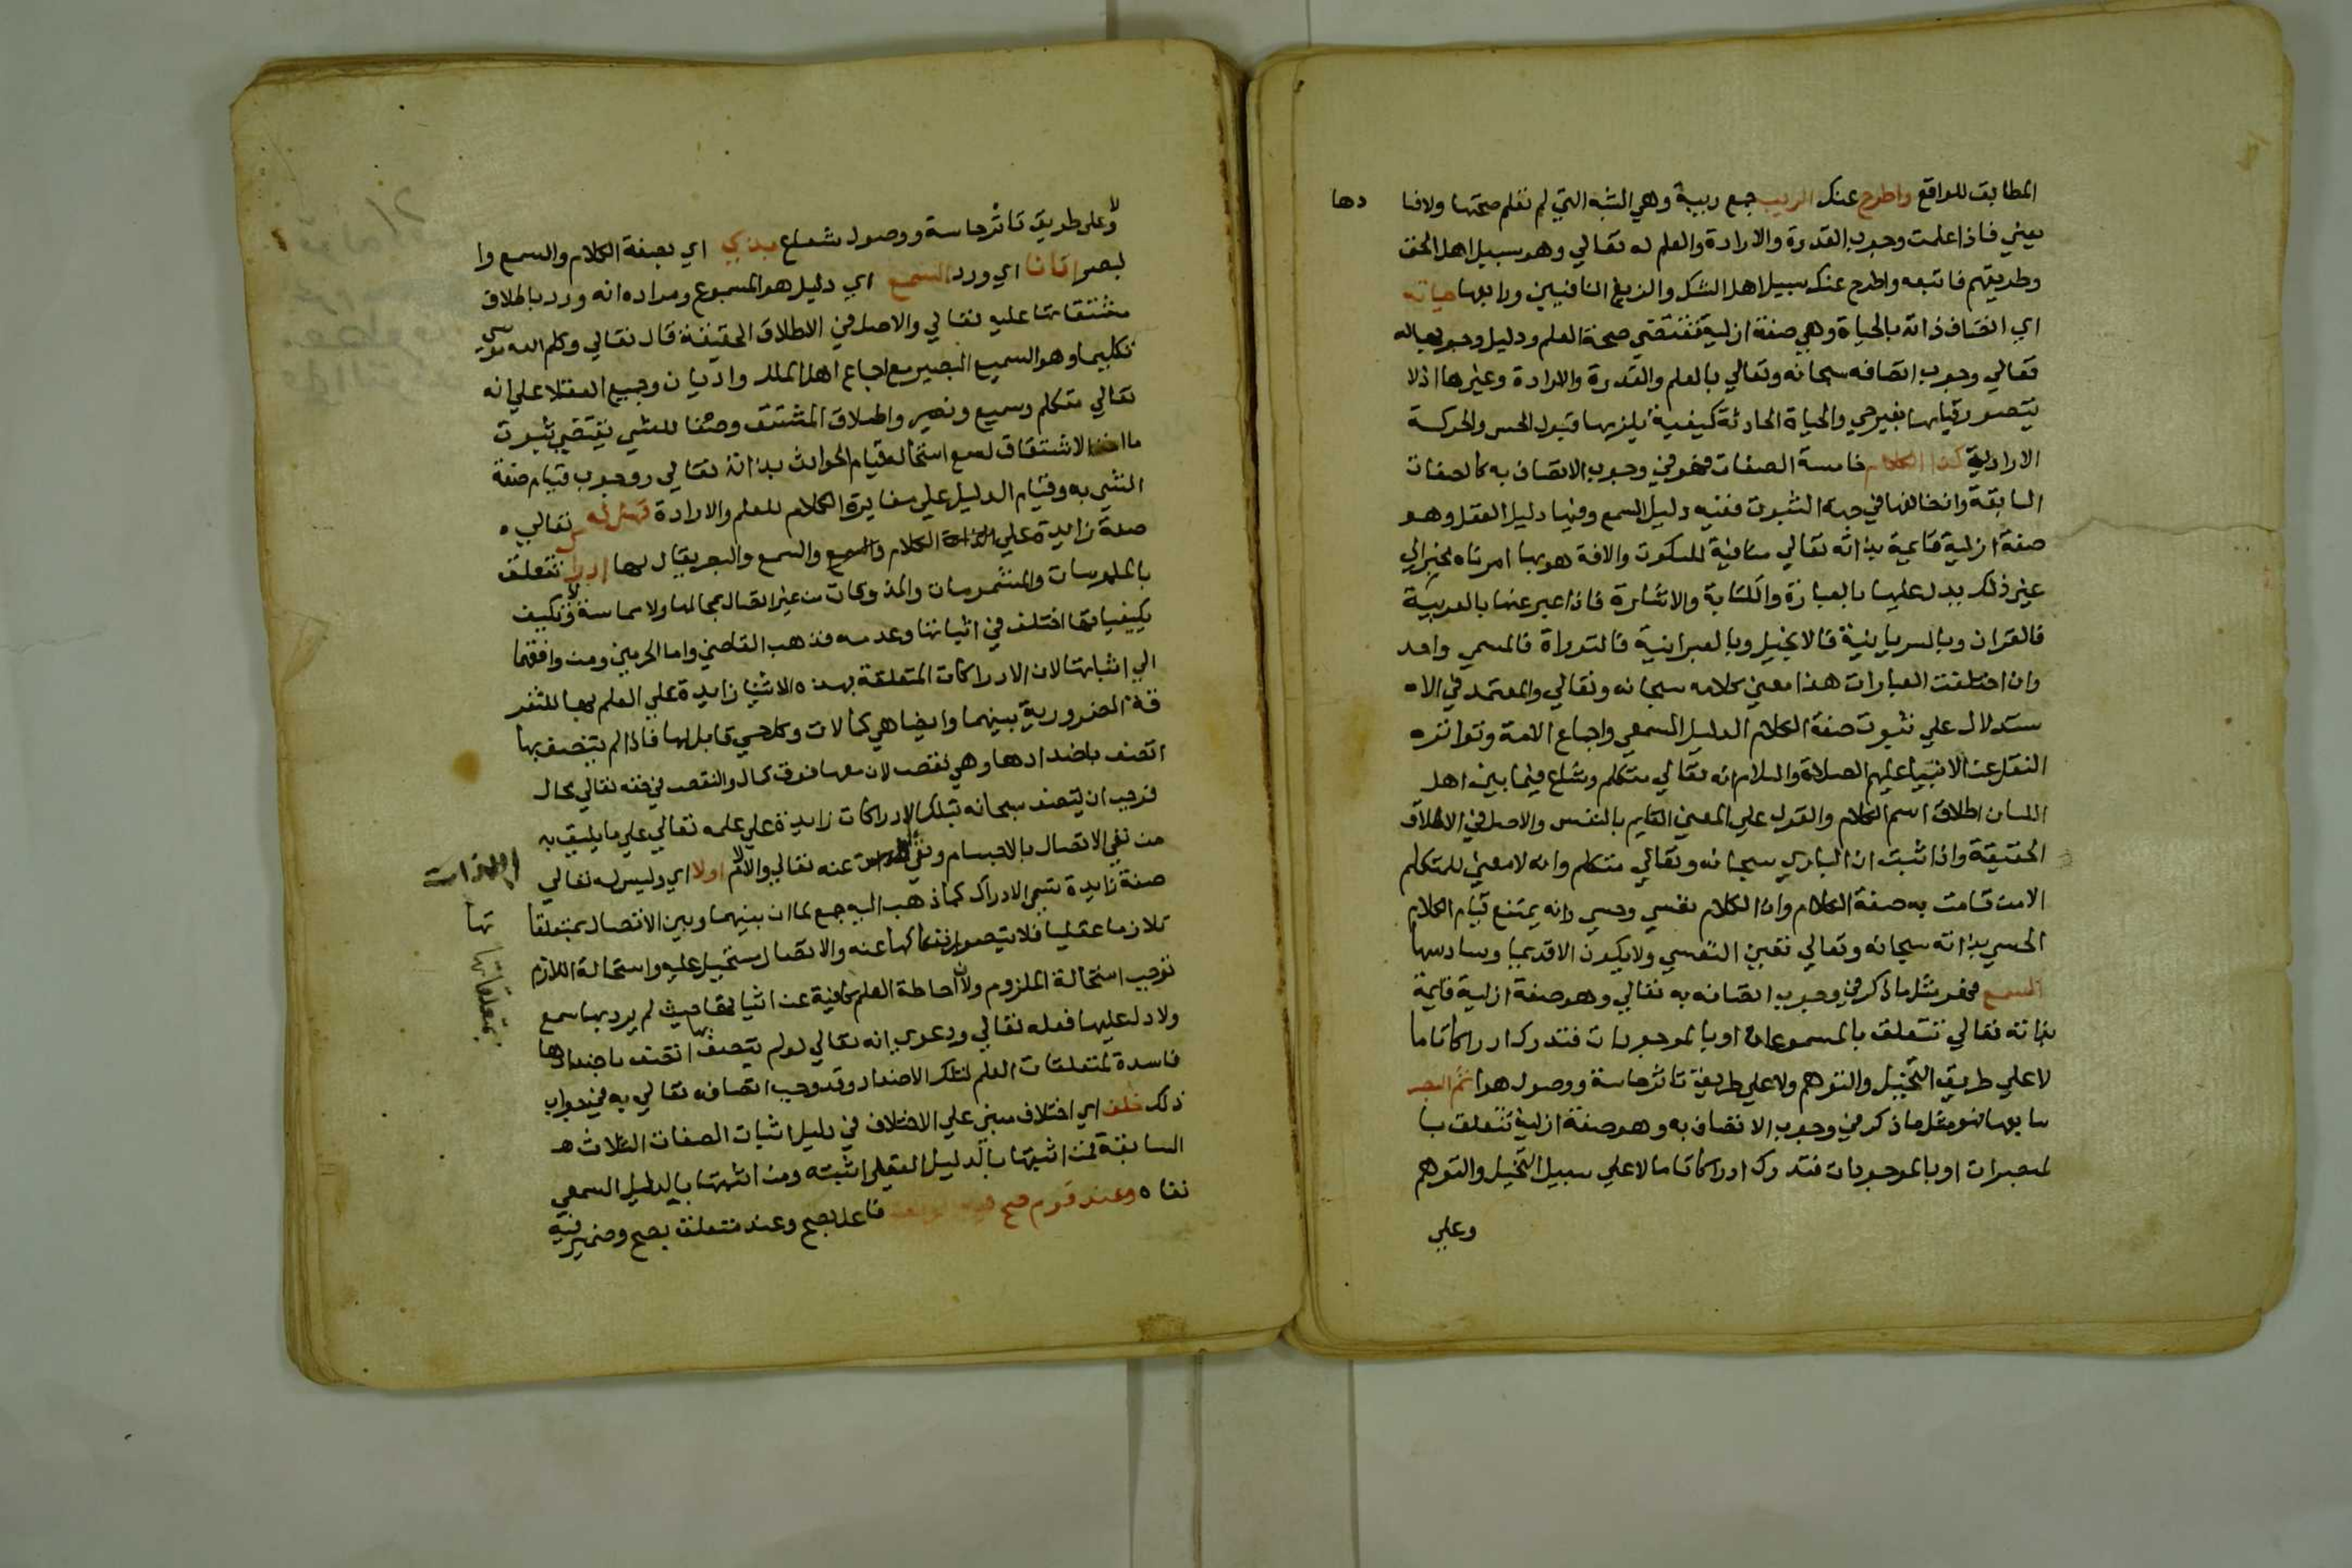 المطابق للواقع واطرح عنك الريب جمع ريبة وهي الشبه التي لم نعلم صحتها ولا فسا دها
يعني فاذا علمت وجوب القدرة والارادة والعلم له تعالي وهو سبيل اهل الحق
وطريقهم فاتبعه واطرح عنك سبيل اهل الشك والزيغ النافيين ورابعها حياته
اي اتصاف ذاته بالحياة وهي صفة ازلية تقتضي صحة العلم ودليل وجوبها له
تعالي وجوب اتصافه سبحانه وتعالي بالعلم والقدرة والارادة وغيرها اذ لا
يتصور قيامها بغير حي والحياة الحادثة كيفية يلزمها قبول الحس والحركة
الارادية كذا الكلام خامسة الصفات فهو في وجوب الاتصاف به كالصفات
السابقة وان خالفها في جهة الثبوت ففيه دليل السمع وفيها دليل العقل وهو
صفة ازلية قائمية بذاته تعالي منافية للسكوت والافة هو بها امر ناه مخبر الي
غير ذلك يدل عليها بالعبارة والكتابة والاشارة فاذا عبر عنها بالعربية
فالقران وبالسريانية فالانجيل وبالعبرانية فالتوراة فالمسمي واحد
وان اختلفت العبارات هذا معني كلامه سبحانه وتعالي والمعتمد في الا
ستدلال علي ثبوت صفة الكلام الدليل السمعي واجماع الامة وتواتره
النقل عن الانبيا عليهم الصلاة والسلام انه تعالي متكلم وشاع فيما بين اهل
اللسان اطلاق اسم الكلام والقول علي المعني القايم بالنفس والاصل في الاطلاق
الحقيقة واذا ثبت ان الباري سبحانه وتعالي متكلم وانه لا معني للمتكلم
الا من قامت به صفة الكلام وان الكلام نفسي وحسي وانه يمتنع قيام الكلام
الحسي بذاته سبحانه وتعالي تعين النفسي ولا يكون الا قديما وسادسها
السمع فهو مثل ما ذكر في وجوب اتصافه به تعالي وهو صفة ازلية قايمة
بذاته تعالي تتعلق بالمسموعات او بالموجودات فتدرك ادراكا تاما
لا علي طريق التخييل والتوهم ولا علي طريق تاثر حاسة ووصول هوا ثم البصر
سابعها فهو مثل ما ذكر في وجوب الاتصاف به وهو صفة ازلية تتعلق با
لمبصرات او بالموجودات فتدرك ادراكا تاما لا علي سبيل التخيل والتوهم
وعلي
ولا علي طريق تاثر حاسة ووصول شعاع بذي اي بصفة الكلام والسمع وا
لبصر اتانا اي ورد السمع اي دليل هو المسموع ومراده انه ورد باطلاق
مشتقاتها عليه تعالي والاصل في الاطلاق الحقيقة قال تعالي وكلم الله موسي
تكليما وهو السميع البصير مع اجماع اهل الملل والاديان وجميع العقلا علي انه
تعالي متكلم وسميع وبصير واطلاق المشتق وصفا للشي يقتضي ثبوت
ما اخذ الاشتقاق له مع استحالة قيام الحوادث بذاته تعالي ووجوب قيام صفة
الشي به وقيام الدليل علي مغايرة الكلام للعلم والارادة فهل له تعالي
صفة زايدة علي الكلام والسمع والبصر يقال لها ادراك تتعلق
بالملموسات والمشمومات والمذوقات من غير اتصال بمحالها ولا مماسة ولا تكيف
بكيفياتها اختلف في اثباتها وعدمه فذهب القاضي وامام الحرمين ومن وافقهما
الي اثباتها لان الادراكات المتعلقة بهذه الاشيا زايدة علي العلم بها للتفر
قة الضرورية بينهما وايضا هي كمالات وكل حي قابل لها فاذا لم يتصف بها
اتصف باضدادها وهي نقص لان معها فوق كمال والنقص في حقه تعالي محال
فوجب ان يتصف سبحانه بتلك الادراكات زايدة علي علمه تعالي علي ما يليق به
من نفي الاتصال بالاجسام ونفي عنه تعالي اولا اي وليس له تعالي
صفة زايدة تسمي الادراك كما ذهب اليه جمع لما ان بينهما وبين الاتصال بمتعلقا تها
تلازما عقليا فلا يتصور انفكاكها عنه والاتصال مستحيل عليه واستحالة اللازم
توجب استحالة الملزوم ولان احاطة العلم كافية عن اثباتها حيث لم يرد بها سمع
ولا دل عليها فعله تعالي ودعوي انه تعالي لو لم يتصف بها اتصف باضدادها
فاسدة لمتعلقات العلم لتلك الاضداد وقد وجب اتصافه تعالي به في جواب
ذلك خلف اي اختلاف مبني علي الاختلاف في دليل اثبات الصفات الثلاث
السابقة فمن اثبتها بالدليل العقلي اثبته ومن اثبتها بالدليل السمعي
نفاه وعند قوم صح فيه الوقف فاعل يصح وعند متعلق بصح وضمير فيه
بمتعلقاتها